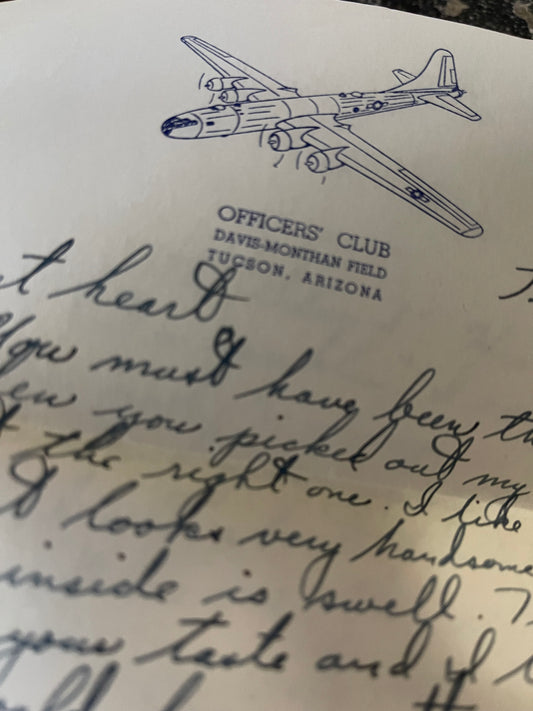 OFFICERS' CLUB
DAVIS-MONTHAN FIELD
TUCSON, ARIZONA
t heart
You must have been th
en you picked out my
the right one. I like
looks very handsome
inside is swell.
your taste and I